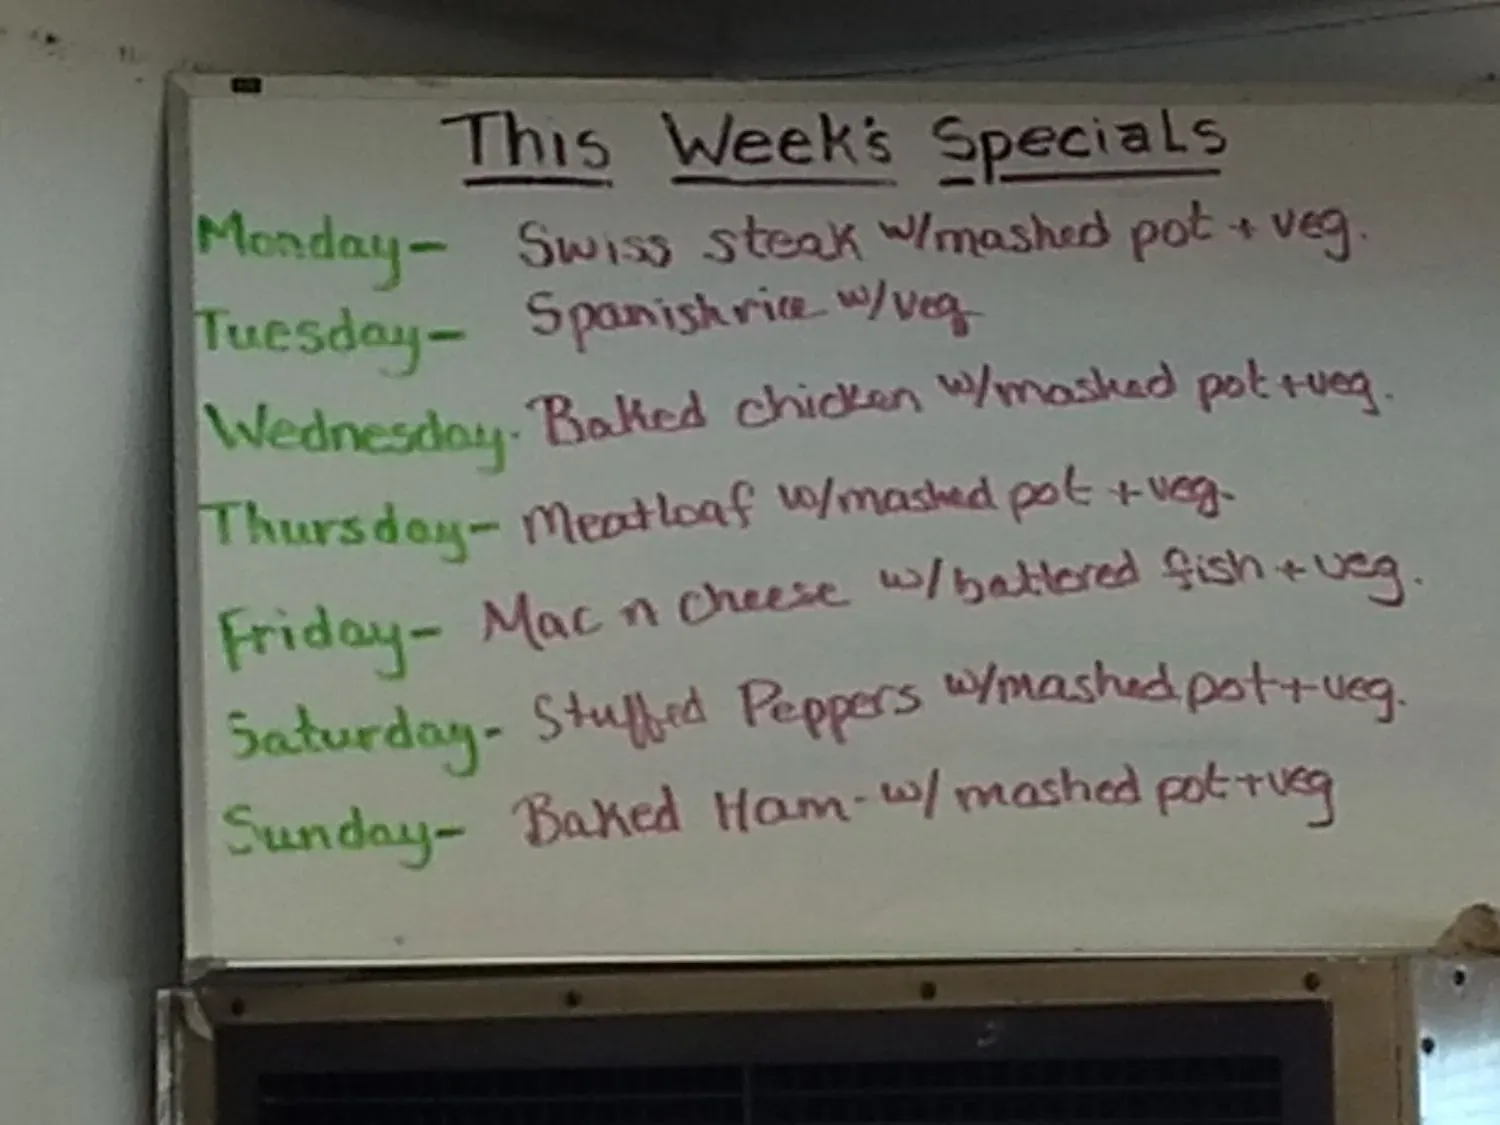 This Week's Specials
Monday- Swiss steak w/mashed pot + veg.
Tuesday- Spanish rice w/veg
Wednesday- Baked chicken w/mashed pot + veg.
Thursday- Meatloaf w/mashed pot + veg.
Friday- Mac n cheese w/battered fish + veg.
Saturday- Stuffed Peppers w/mashed pot + veg.
Sunday- Baked Ham- w/ mashed pot + veg